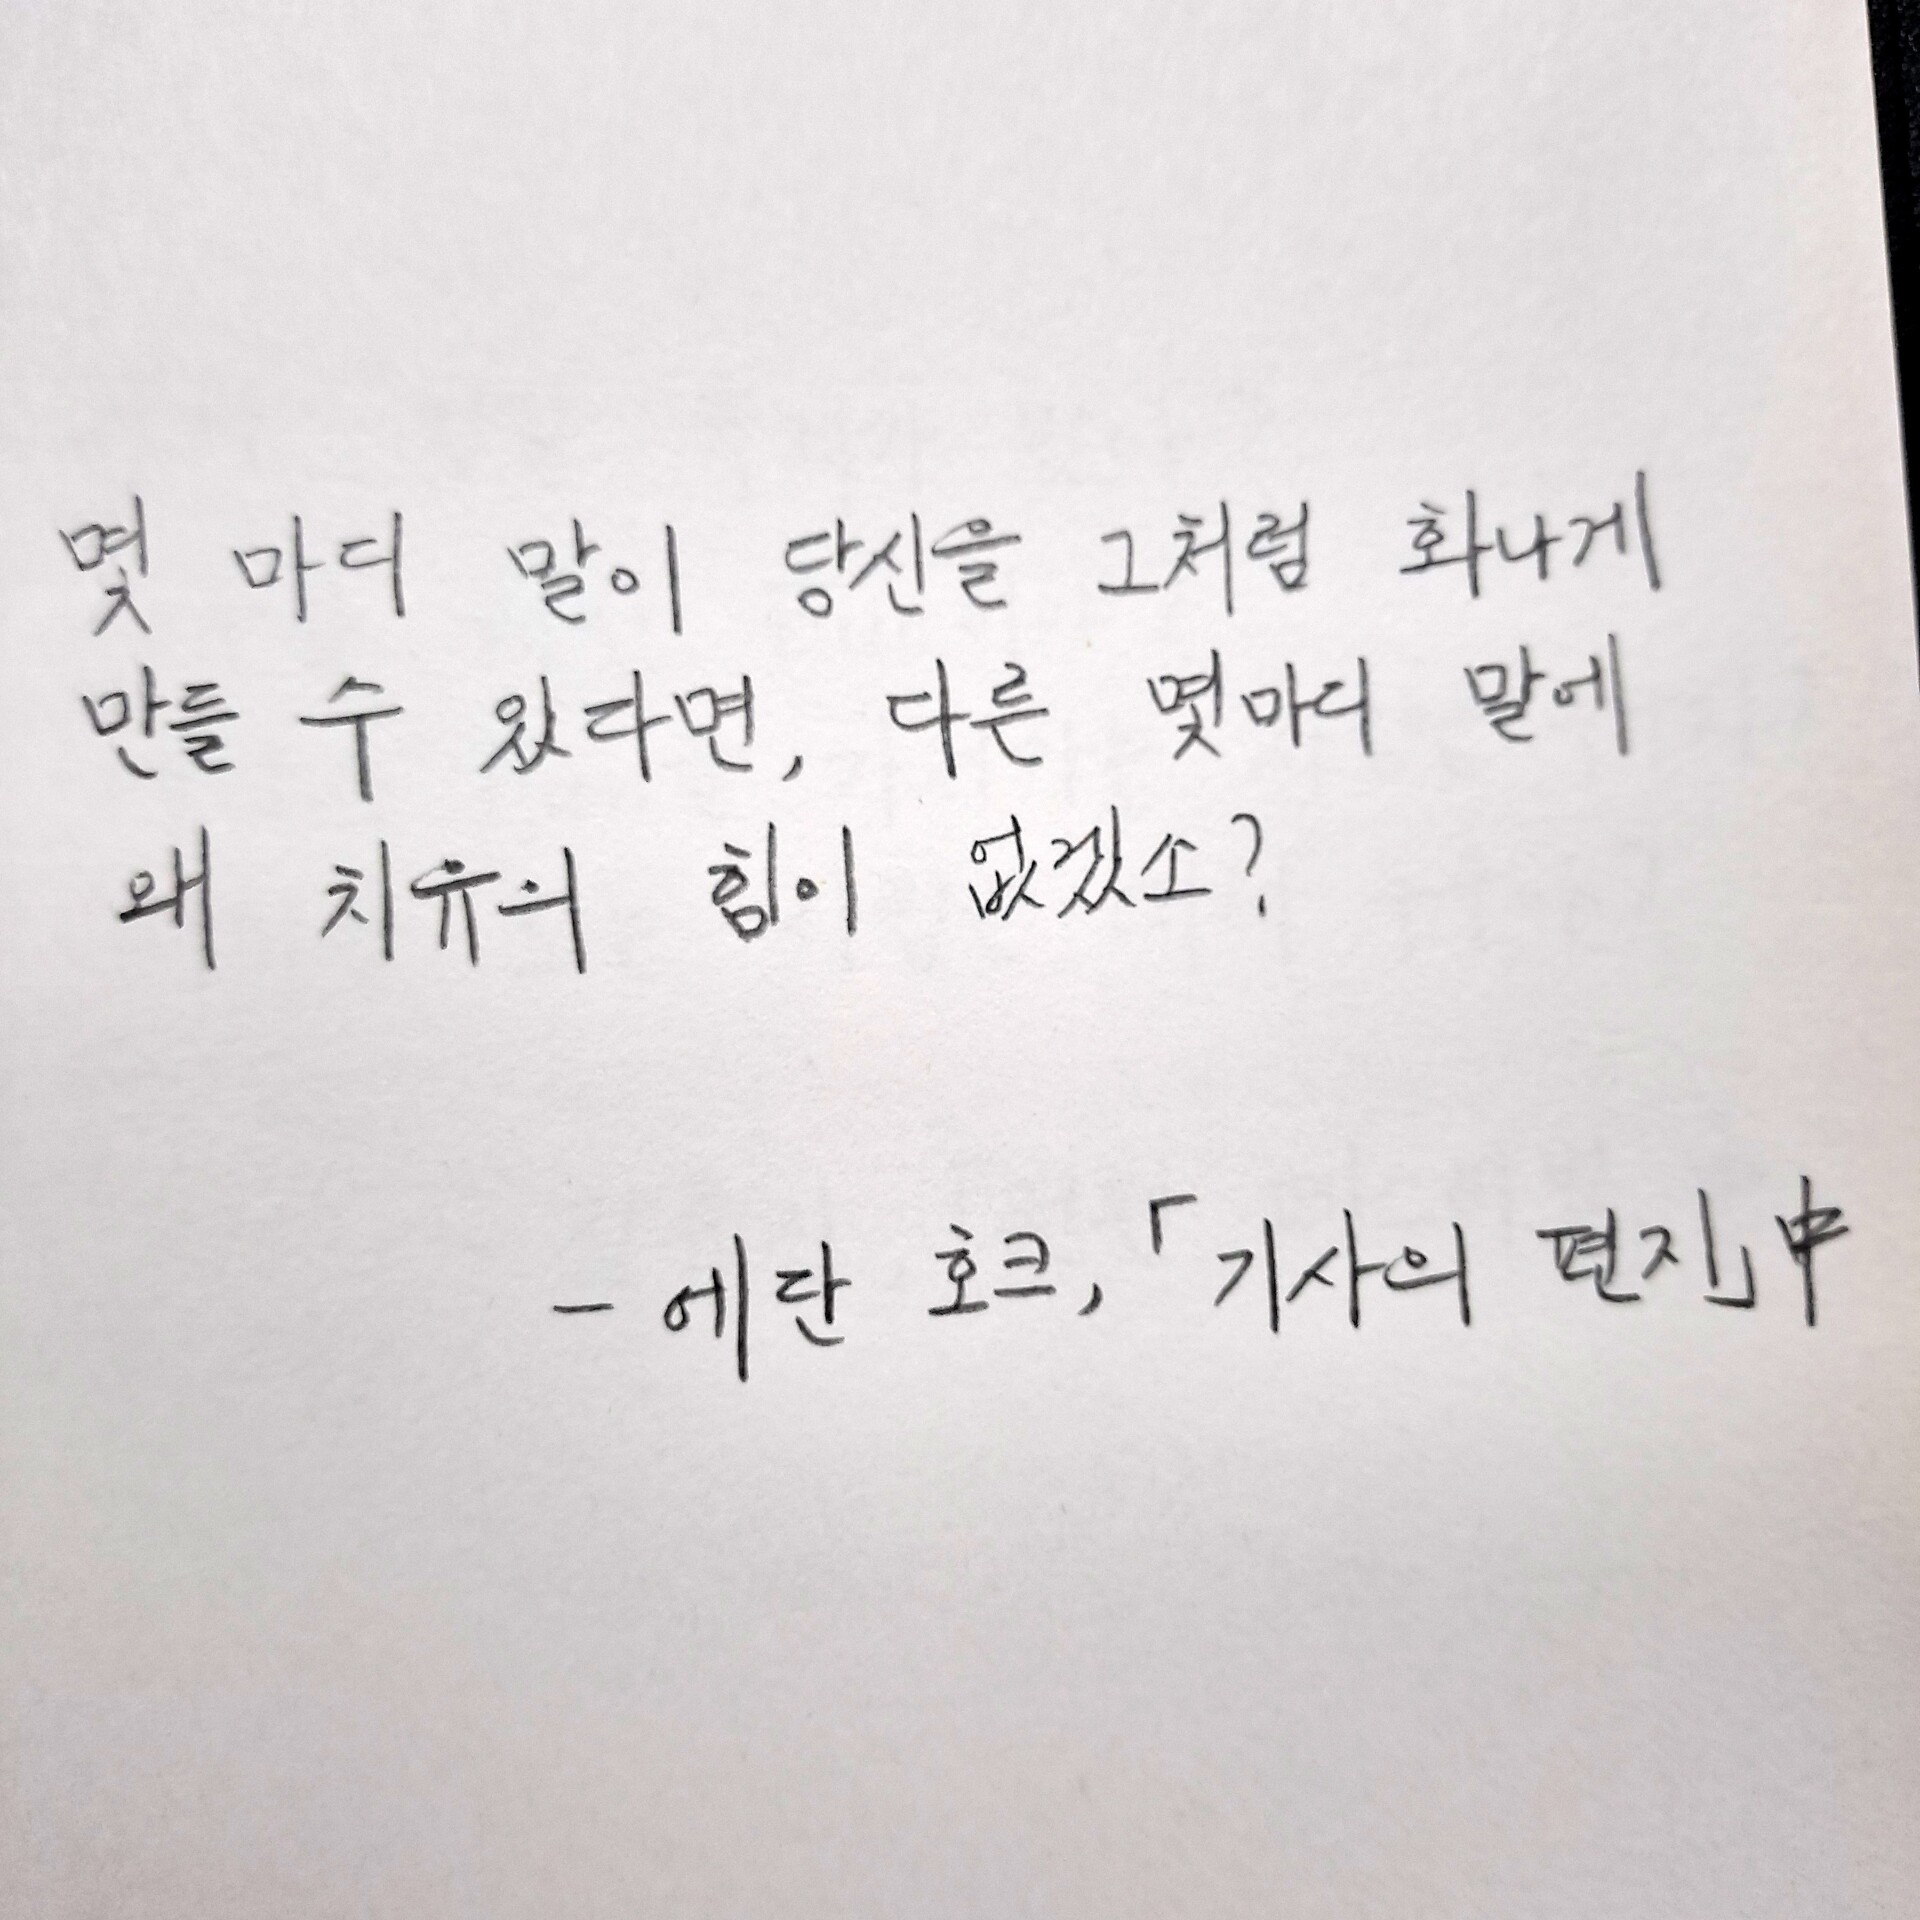 몇 마디 말이 당신을 그처럼 화나게
만들 수 있다면, 다른 몇마디 말에
왜 치유의 힘이 없겠소?
- 에단 호크, 「기사의 편지」中